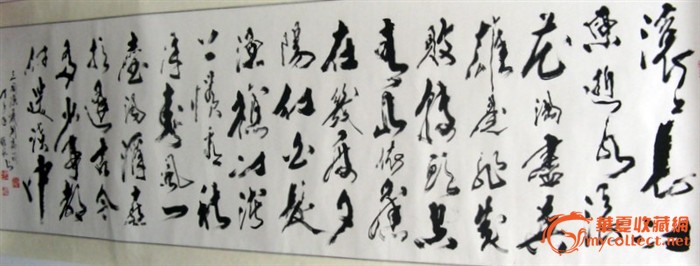 滚々長江
東逝水浪
花淘盡英
雄是非成
敗轉頭空
青山依舊
在幾度夕
陽紅白髮
漁樵江渚
上慣看秋
月春風一
壺濁酒喜
相逢古今
多少事都
付笑談中
華夏收藏網
mycollect.net